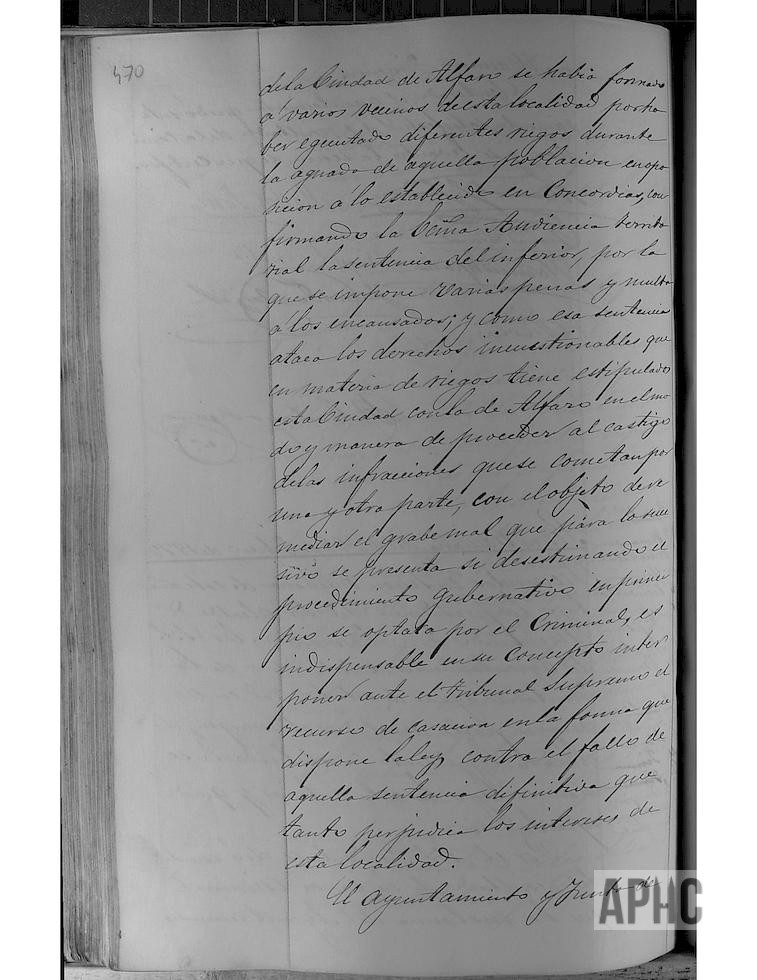 470
de la Ciudad de Alfaro se habia formado
á varios vecinos de esta localidad por ha
ber egecutado diferentes riegos durante
la aguada de aquella poblacion en opo
sicion á lo establecido en Concordias, con
firmando la Ecma Audiencia territo
rial la sentencia del inferior, por la
que se impone varias penas y multa
á los encausados; y como esa sentencia
ataca los derechos incuestionables que
en materia de riegos tiene estipulado
esta Ciudad con la de Alfaro en el mo
do y manera de proceder al castigo
de las infracciones que se cometan por
una y otra parte, con el objeto de re
mediar el grabe mal que para lo suce
sivo se presenta si desestimando el
procedimiento gubernativo en princi
pio se optara por el Criminal, es
indispensable en su concepto inter
poner ante el tribunal Supremo el
recurso de casacion en la forma que
dispone la ley, contra el fallo de
aquella sentencia difinitiva que
tanto perjudica los intereses de
esta localidad.
El Ayuntamiento y Junta de
APHC